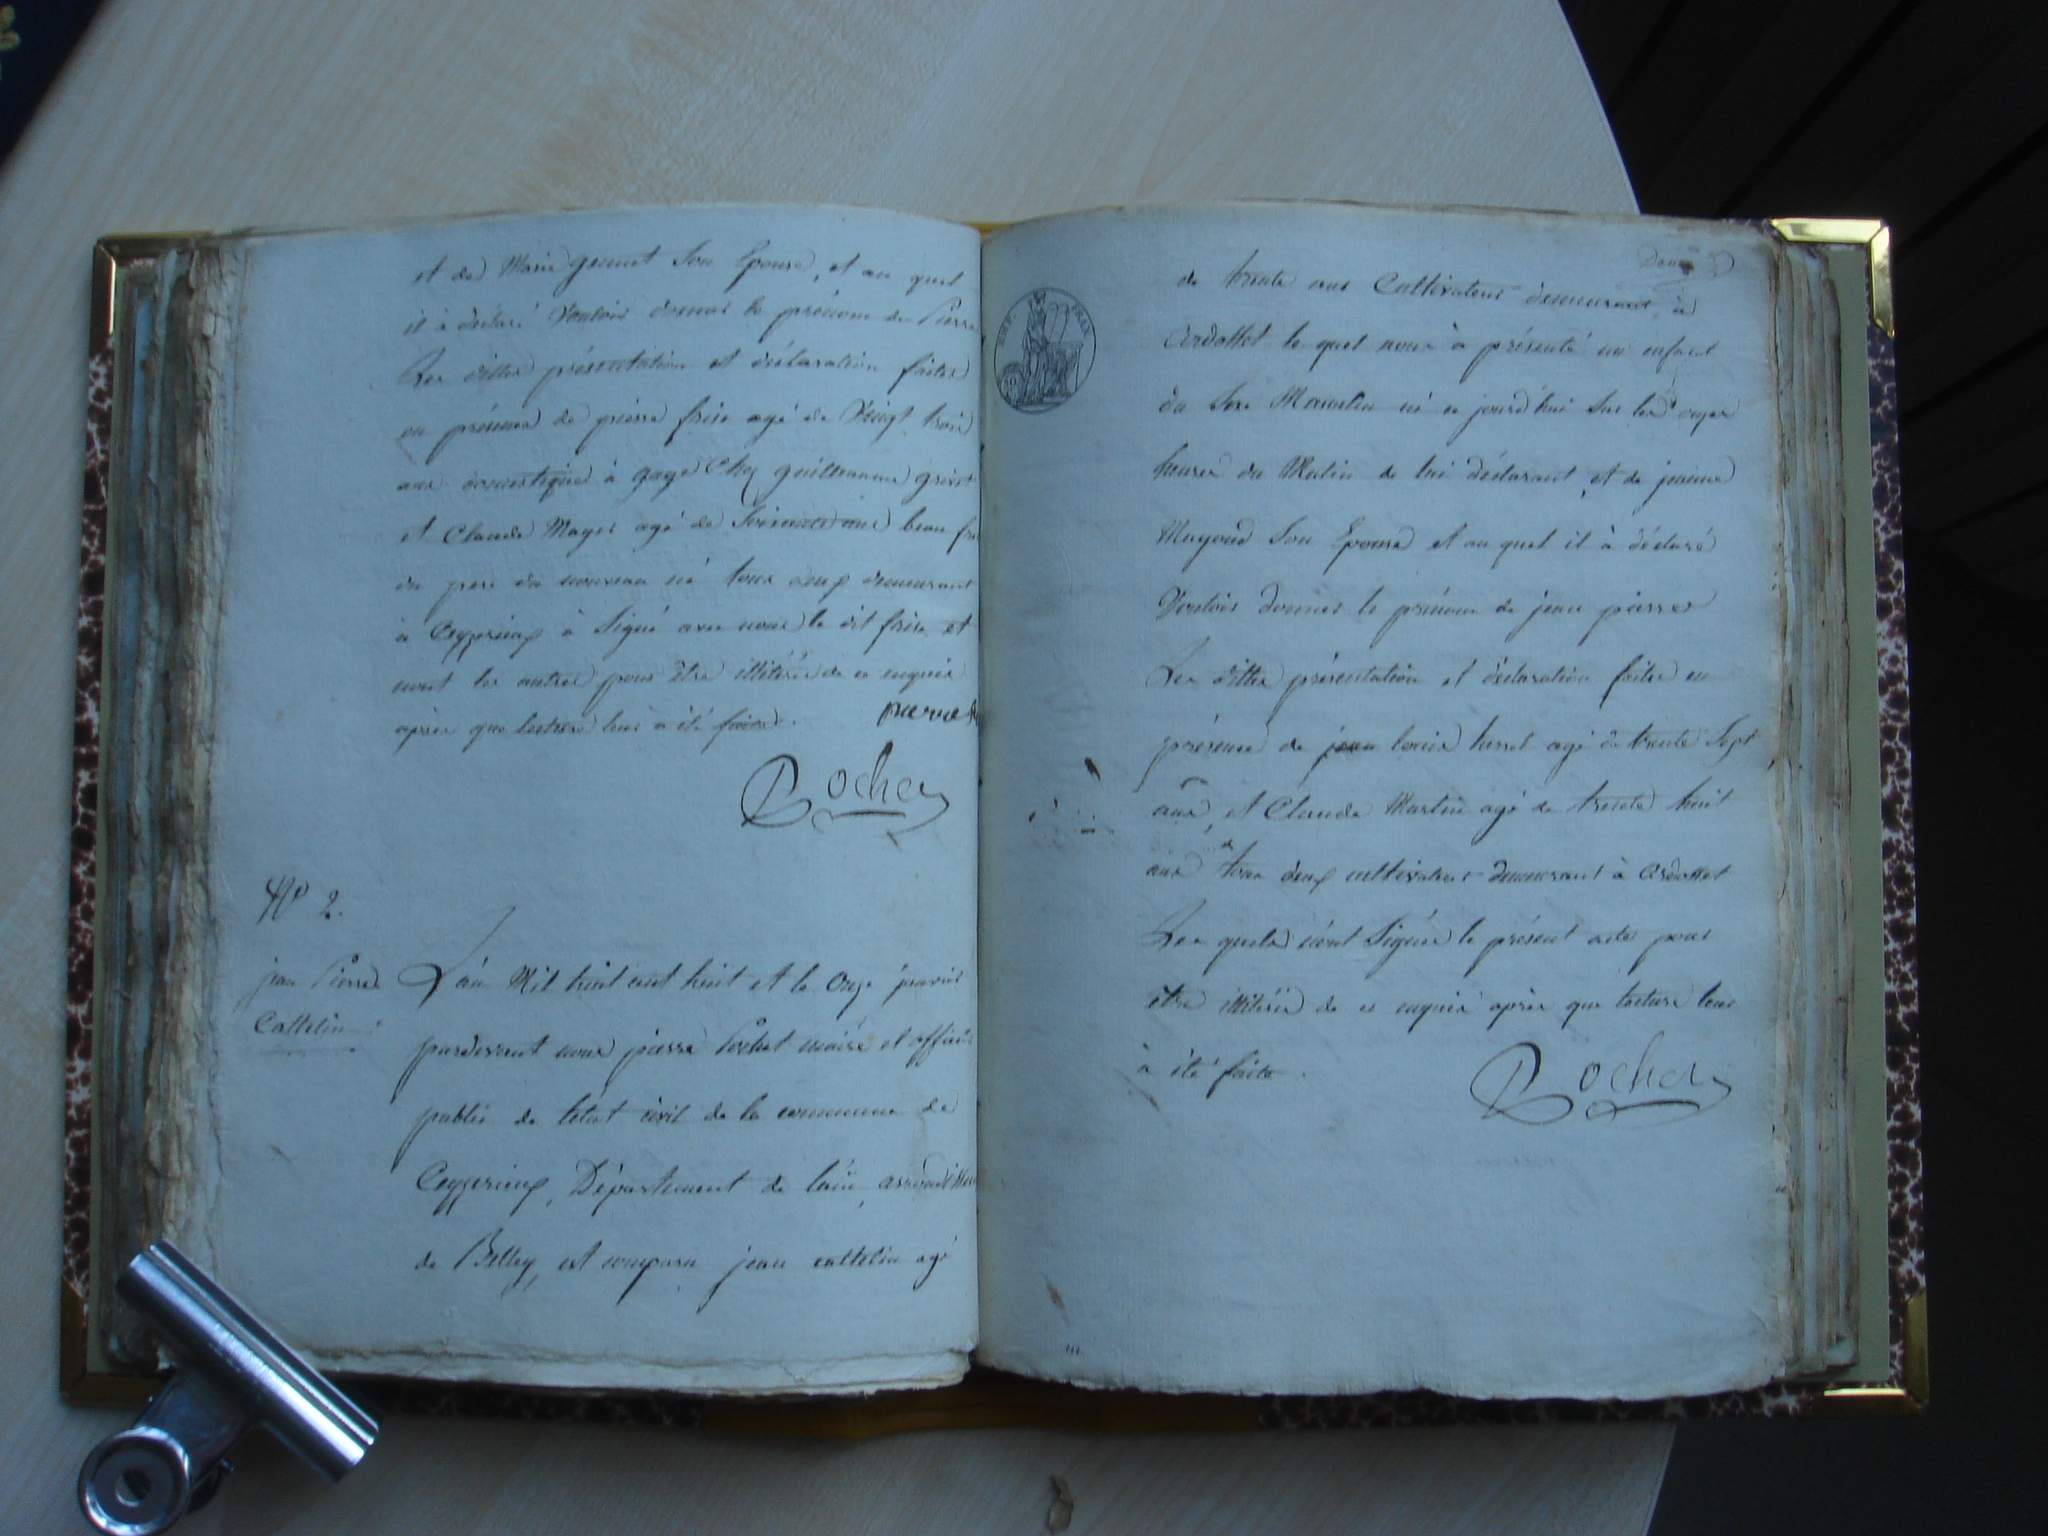 et de Marie genuet Son Epouse, et au quel
il à déclaré Vouloir donner le prénom de Pierre
Les dittes présentation et déclaration faites
en présence de pierre frise agé de Vingt trois
ans domestique à gage Chez guillaume
et Claude Mayer agé de Soixante ans beau fre
du pere du nouveau né tous deux demeurant
à Ceyzerieux à Signé avec nous le dit frise et
nont les autres pour être illiteré de ce enquis
après que lecture leur a été faite.
pierre
Rochet
No 2.
jean Pierre
Cattelin
L'an Mil huit cent huit et le Onze janvier
pardevant nous pierre Rochet maire et officier
public de letat civil de la commune de
Ceyzerieux, Département de lain, arrondissem
de Belley, est comparu jean cattelin agé
de trente ans Cultivateur demeurant à
Ardosset le quel nous à présenté un enfant
du Sexe Masculin né ce jourd'hui Sur les onzes
heures du Matin de lui déclarant, et de
Mayoud Son Epouse et au quel il à déclaré
Vouloir donner le prénom de jean pierre
Les dittes présentation et déclaration faites en
présence de jean louis agé de trente Sept
ans, et Claude Martin agé de trente huit
ans tous deux cultivateur demeurant à Ardosset
Les quels nont Signés le présent acte pour
être illiteré de ce enquis après que lecture leur
à été faite.
Rochet
EMP. FRAN.